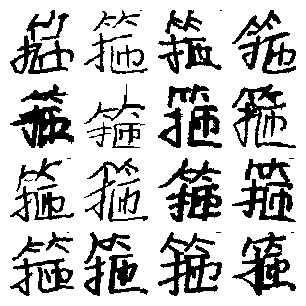 箍箍箍箍
箍箍箍箍
箍箍箍箍
箍箍箍箍